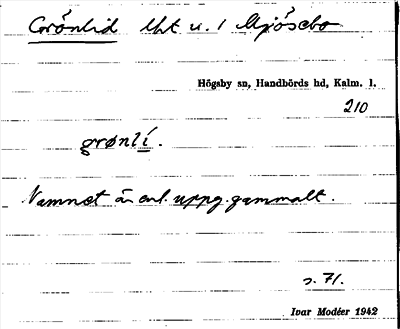 Grönlid lht u. 1 Mjösebo
Högsby sn, Handbörds hd, Kalm. l.
210
grønlí.
Namnet är enl. uppg. gammalt.
s. 71.
Ivar Modéer 1942